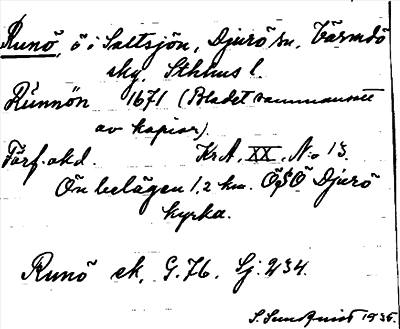 Runö, ö i Saltsjön, Djurö sn, Värmdö
skg, Sthlms l.
Rünnön 1671 (Bladet sammansatt
av kopior).
Förf. okd. KrA, XX, No 13.
Ön belägen 1,2 km. ÖSÖ Djurö
kyrka.
Runö ek. G. 76. Sj. 234.
S. Sundquist 1935.